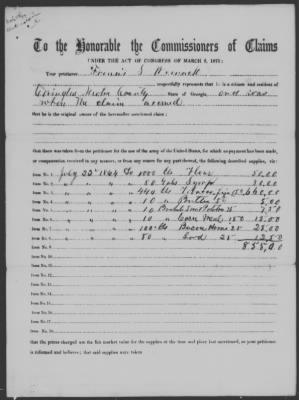 To the Honorable the Commissioners of Claims
UNDER THE ACT OF CONGRESS OF MARCH 3, 1871:
Your petitioner, Francis S
respectfully represents that he is a citizen and resident of
Covington Newton County State of Georgia, and was
when the claim accrued
that he is the original owner of the hereinafter mentioned claim;
that there was taken from the petitioner for the use of the army of the United States, for which no payment has been made,
or compensation received in any manner, or from any source for any part thereof, the following described supplies, viz:
Item No. 1. July 22d 1864 To 1000 lbs Flour 50.00
Item No. 2. " " " 50 Gals Syrup
Item No. 3. " " " 440 lbs
Item No. 4. " " " 10 " Butter 5.00
Item No. 5. " " " 10 Bushel Potatoes 7.50
Item No. 6. " " " 10 " Corn Meal 150 15.00
Item No. 7. " " " 100 lbs Bacon Hams 25 25.00
Item No. 8. " " " 50 " Lard 25 12.50
Item No. 9.
Item No. 10.
Item No. 11.
Item No. 12.
Item No. 13.
Item No. 14.
Item No. 15.
Item No. 16.
Item No. 17.
Item No. 18.
that the prices charged are the fair market value for the supplies at the time and place last mentioned, as your petitioner
is informed and believes; that said supplies were taken